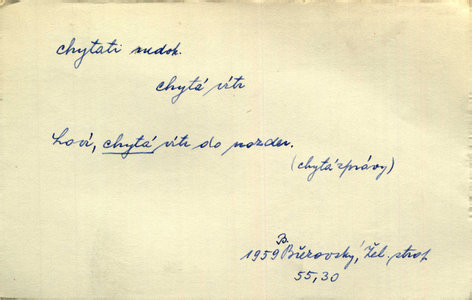 chytati nedok.
chytá vítr
Loví, chytá vítr do nozder.
(chytá zprávy)
B.
1959 Březovský, Žel. strop
55,30